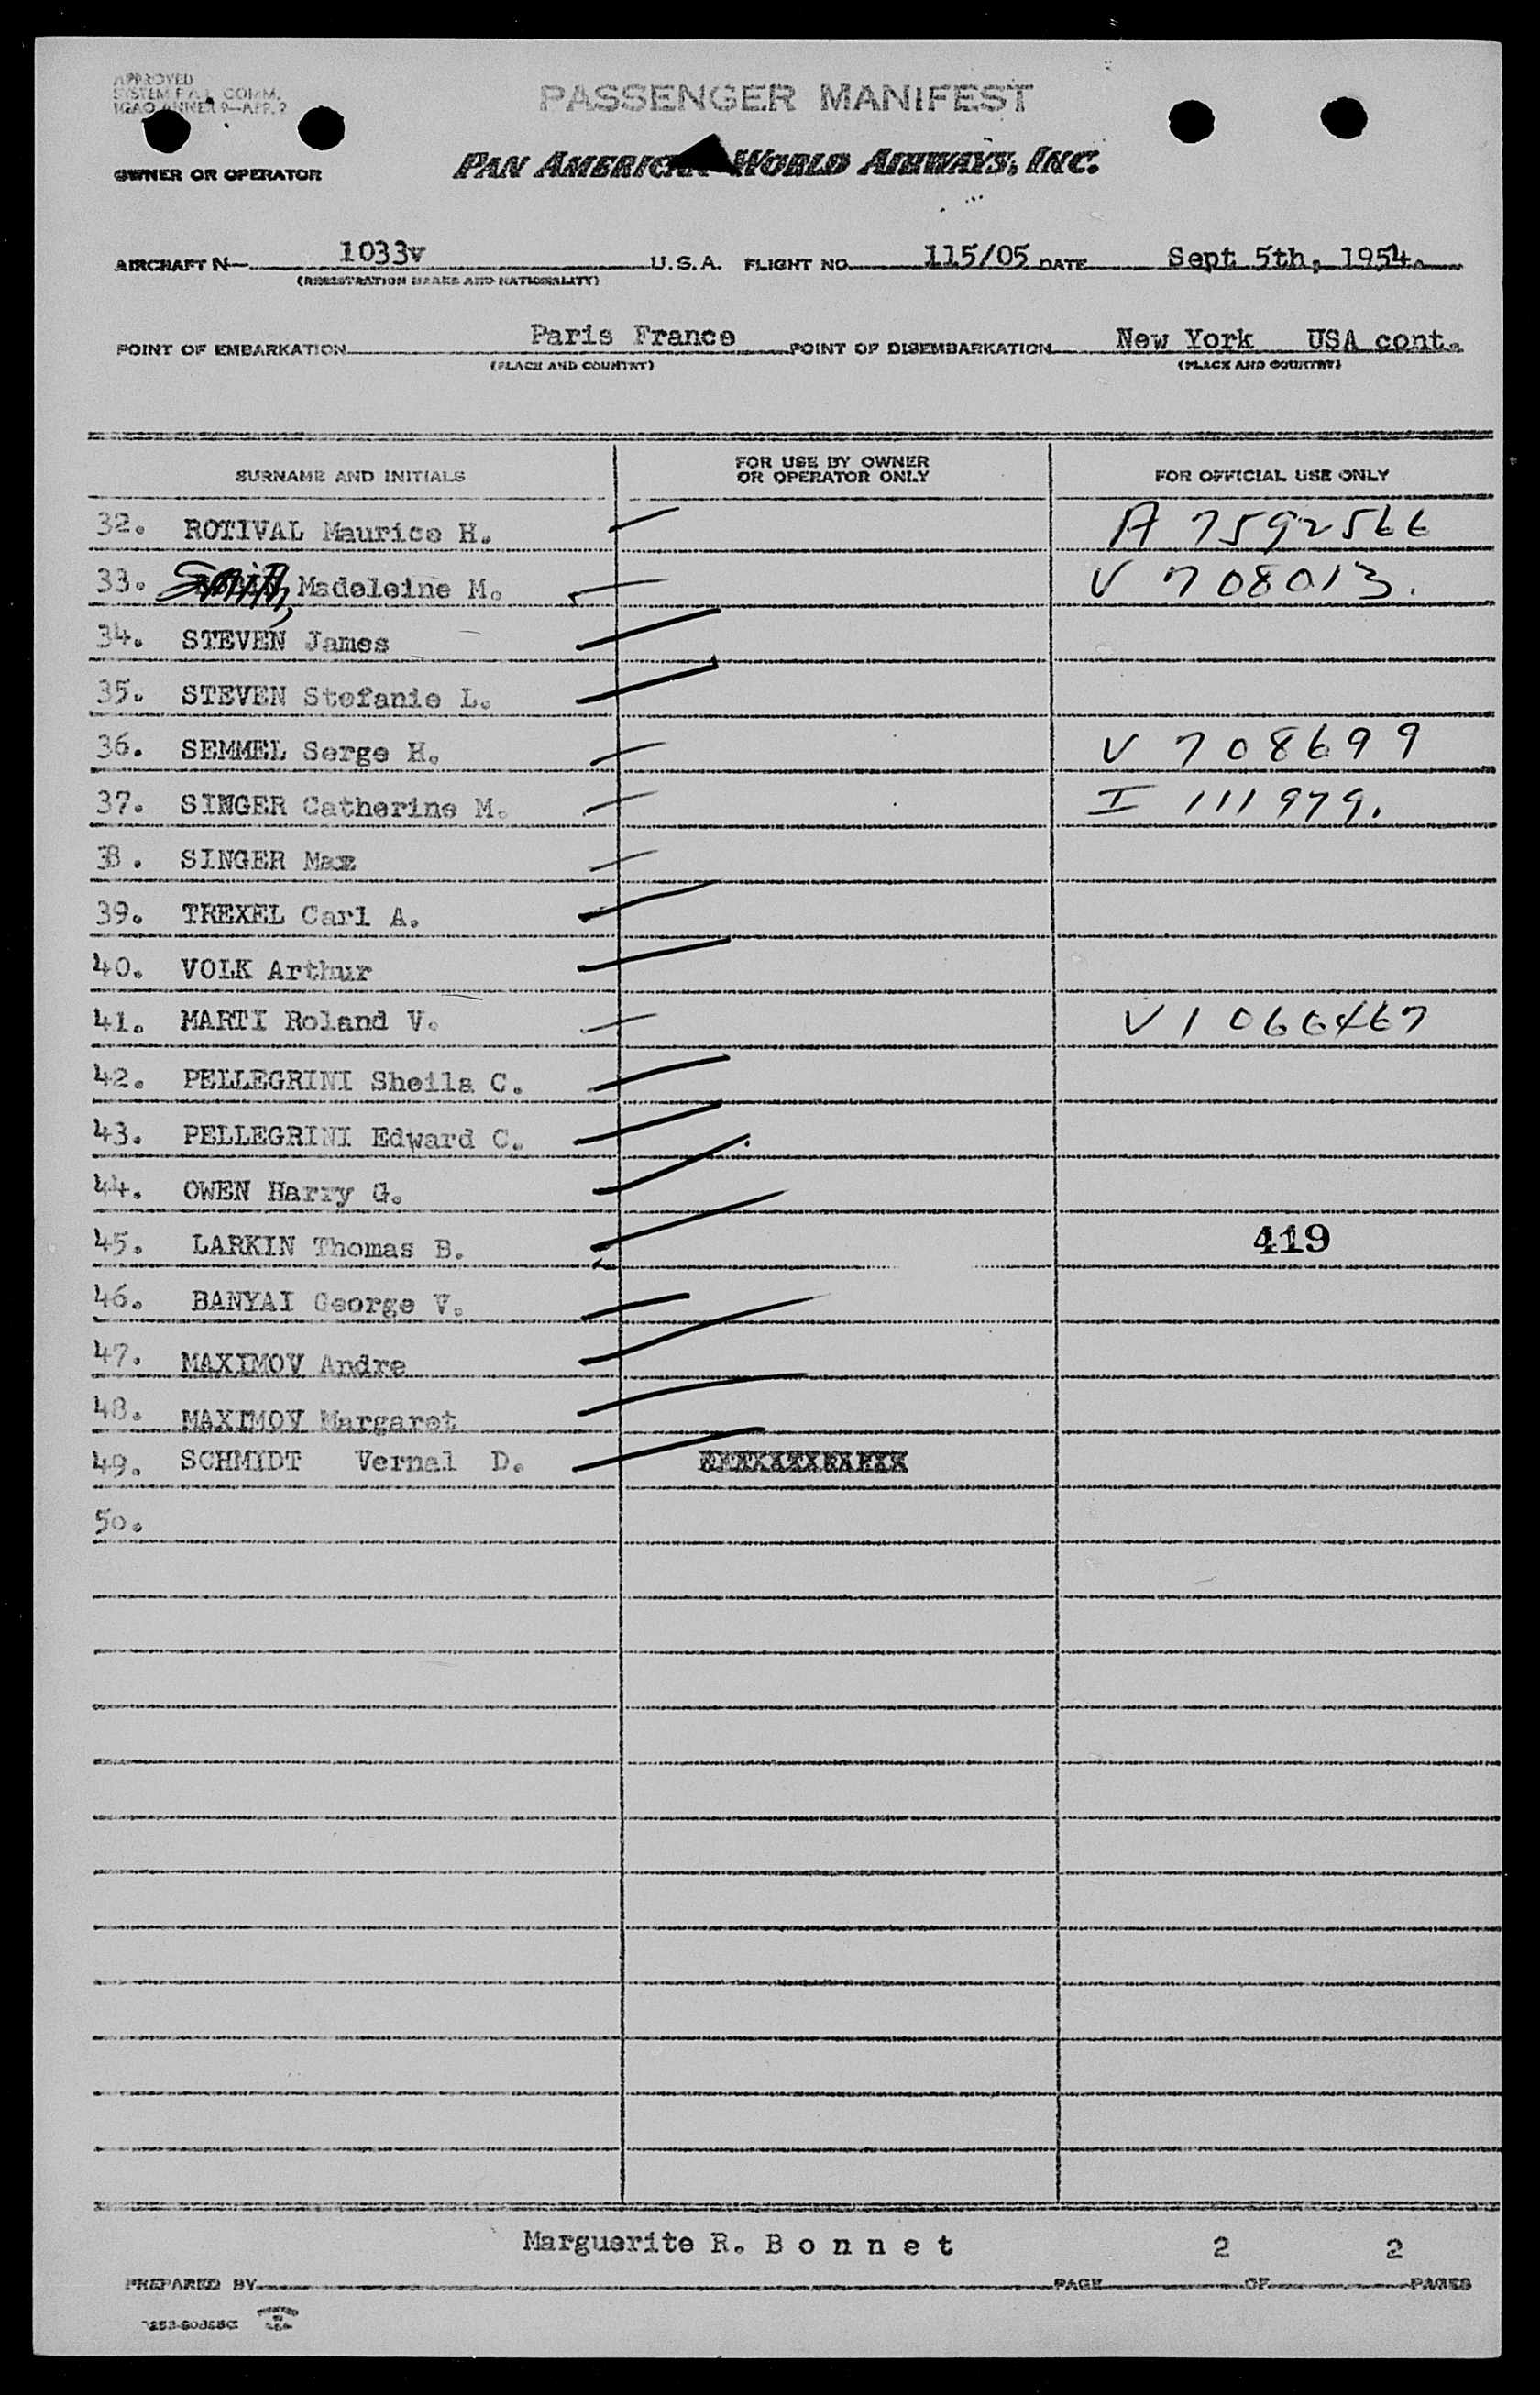 APPROVED
SYSTEM F.A.L. COMM.
ICAO ANNEX 9—APP. 2
PASSENGER MANIFEST
OWNER OR OPERATOR
PAN AMERICAN WORLD AIRWAYS, INC.
AIRCRAFT N— 1033v U.S.A. FLIGHT NO. 115/05 DATE Sept 5th, 1954.
(REGISTRATION MARKS AND NATIONALITY)
POINT OF EMBARKATION Paris France POINT OF DISEMBARKATION New York USA cont.
(PLACE AND COUNTRY) (PLACE AND COUNTRY)
SURNAME AND INITIALS FOR USE BY OWNER OR OPERATOR ONLY FOR OFFICIAL USE ONLY
32. ROTIVAL Maurice H. A 7592566
33. Smith, Madeleine M. V 708013.
34. STEVEN James
35. STEVEN Stefanie L.
36. SEMMEL Serge H. V 708699
37. SINGER Catherine M. I 111979.
38. SINGER Max
39. TREXEL Carl A.
40. VOLK Arthur
41. MARTI Roland V. V 1066467
42. PELLEGRINI Sheila C.
43. PELLEGRINI Edward C.
44. OWEN Harry G.
45. LARKIN Thomas B. 419
46. BANYAI George V.
47. MAXIMOV Andre
48. MAXIMOV Margaret
49. SCHMIDT Vernal D.
50.
Marguerite R. Bonnet 2 2
PREPARED BY PAGE OF PAGES